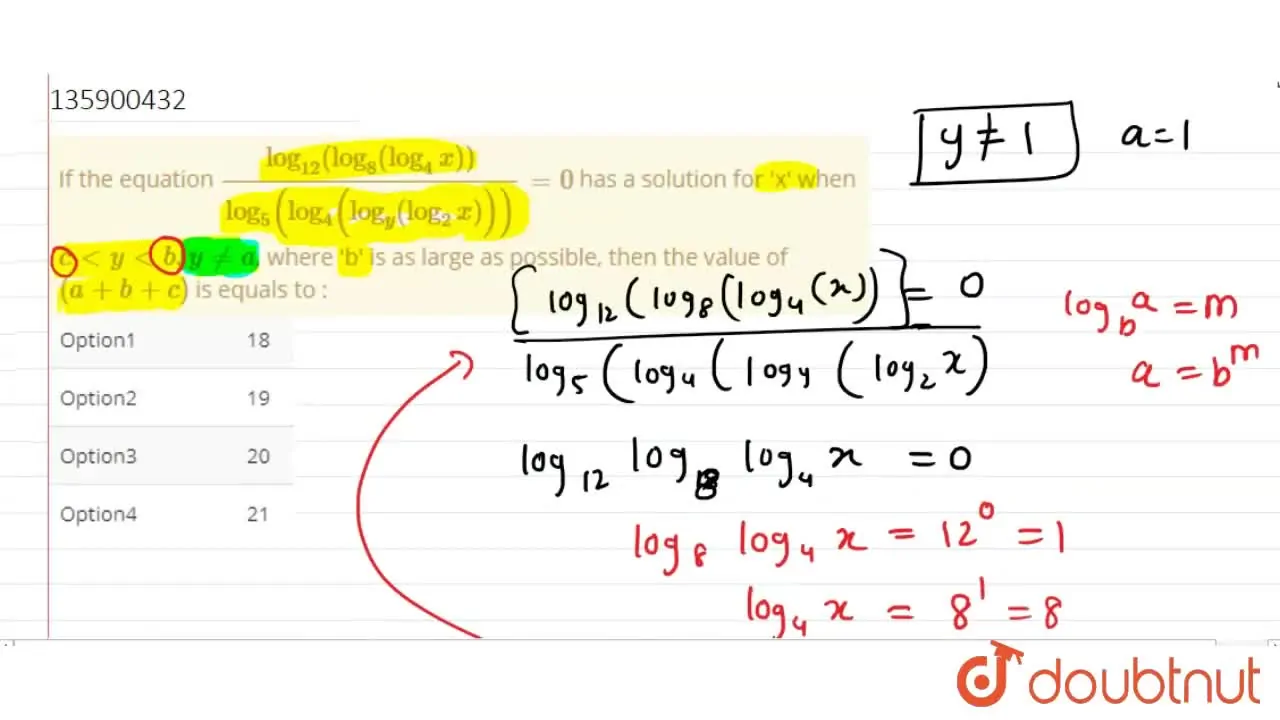 135900432
If the equation log₁₂(log₈(log₄ x)) / log₅(log₄(log_y(log₂ x))) = 0 has a solution for 'x' when
c < y < b, y ≠ a, where 'b' is as large as possible, then the value of
(a + b + c) is equals to :
Option1 18
Option2 19
Option3 20
Option4 21
y ≠ 1 a=1
[log₁₂(log₈(log₄(x))] = 0
log₅(log₄(log y(log₂ x)
log_b a = m
a = b^m
log₁₂ log₈ log₄ x = 0
log₈ log₄ x = 12⁰ = 1
log₄ x = 8¹ = 8
doubtnut